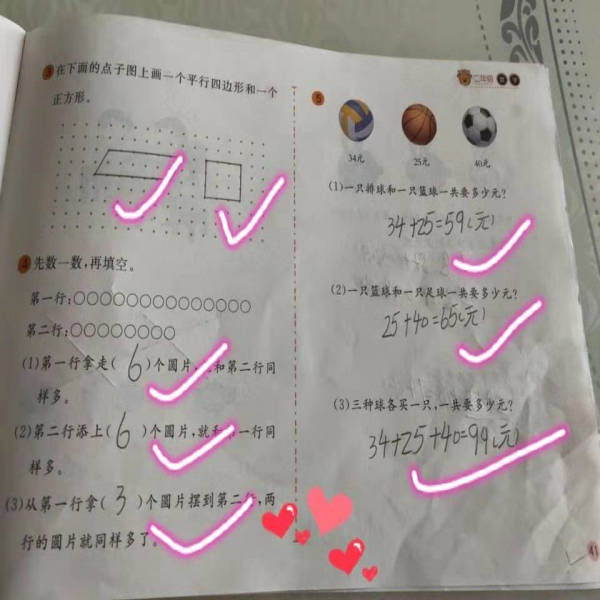 3 在下面的点子图上画一个平行四边形和一个
正方形。
4 先数一数,再填空。
第一行:○○○○○○○○○○○○○○
第二行:○○○○○○○○
(1)第一行拿走( 6 )个圆片,和第二行同
样多。
(2)第二行添上( 6 )个圆片,就和一行同
样多。
(3)从第一行拿( 3 )个圆片摆到第二行,两
行的圆片就同样多了。
二年级
5
34元 25元 40元
(1)一只排球和一只篮球一共要多少元?
34+25=59(元)
(2)一只篮球和一只足球一共要多少元?
25+40=65(元)
(3)三种球各买一只,一共要多少元?
34+25+40=99(元)
41